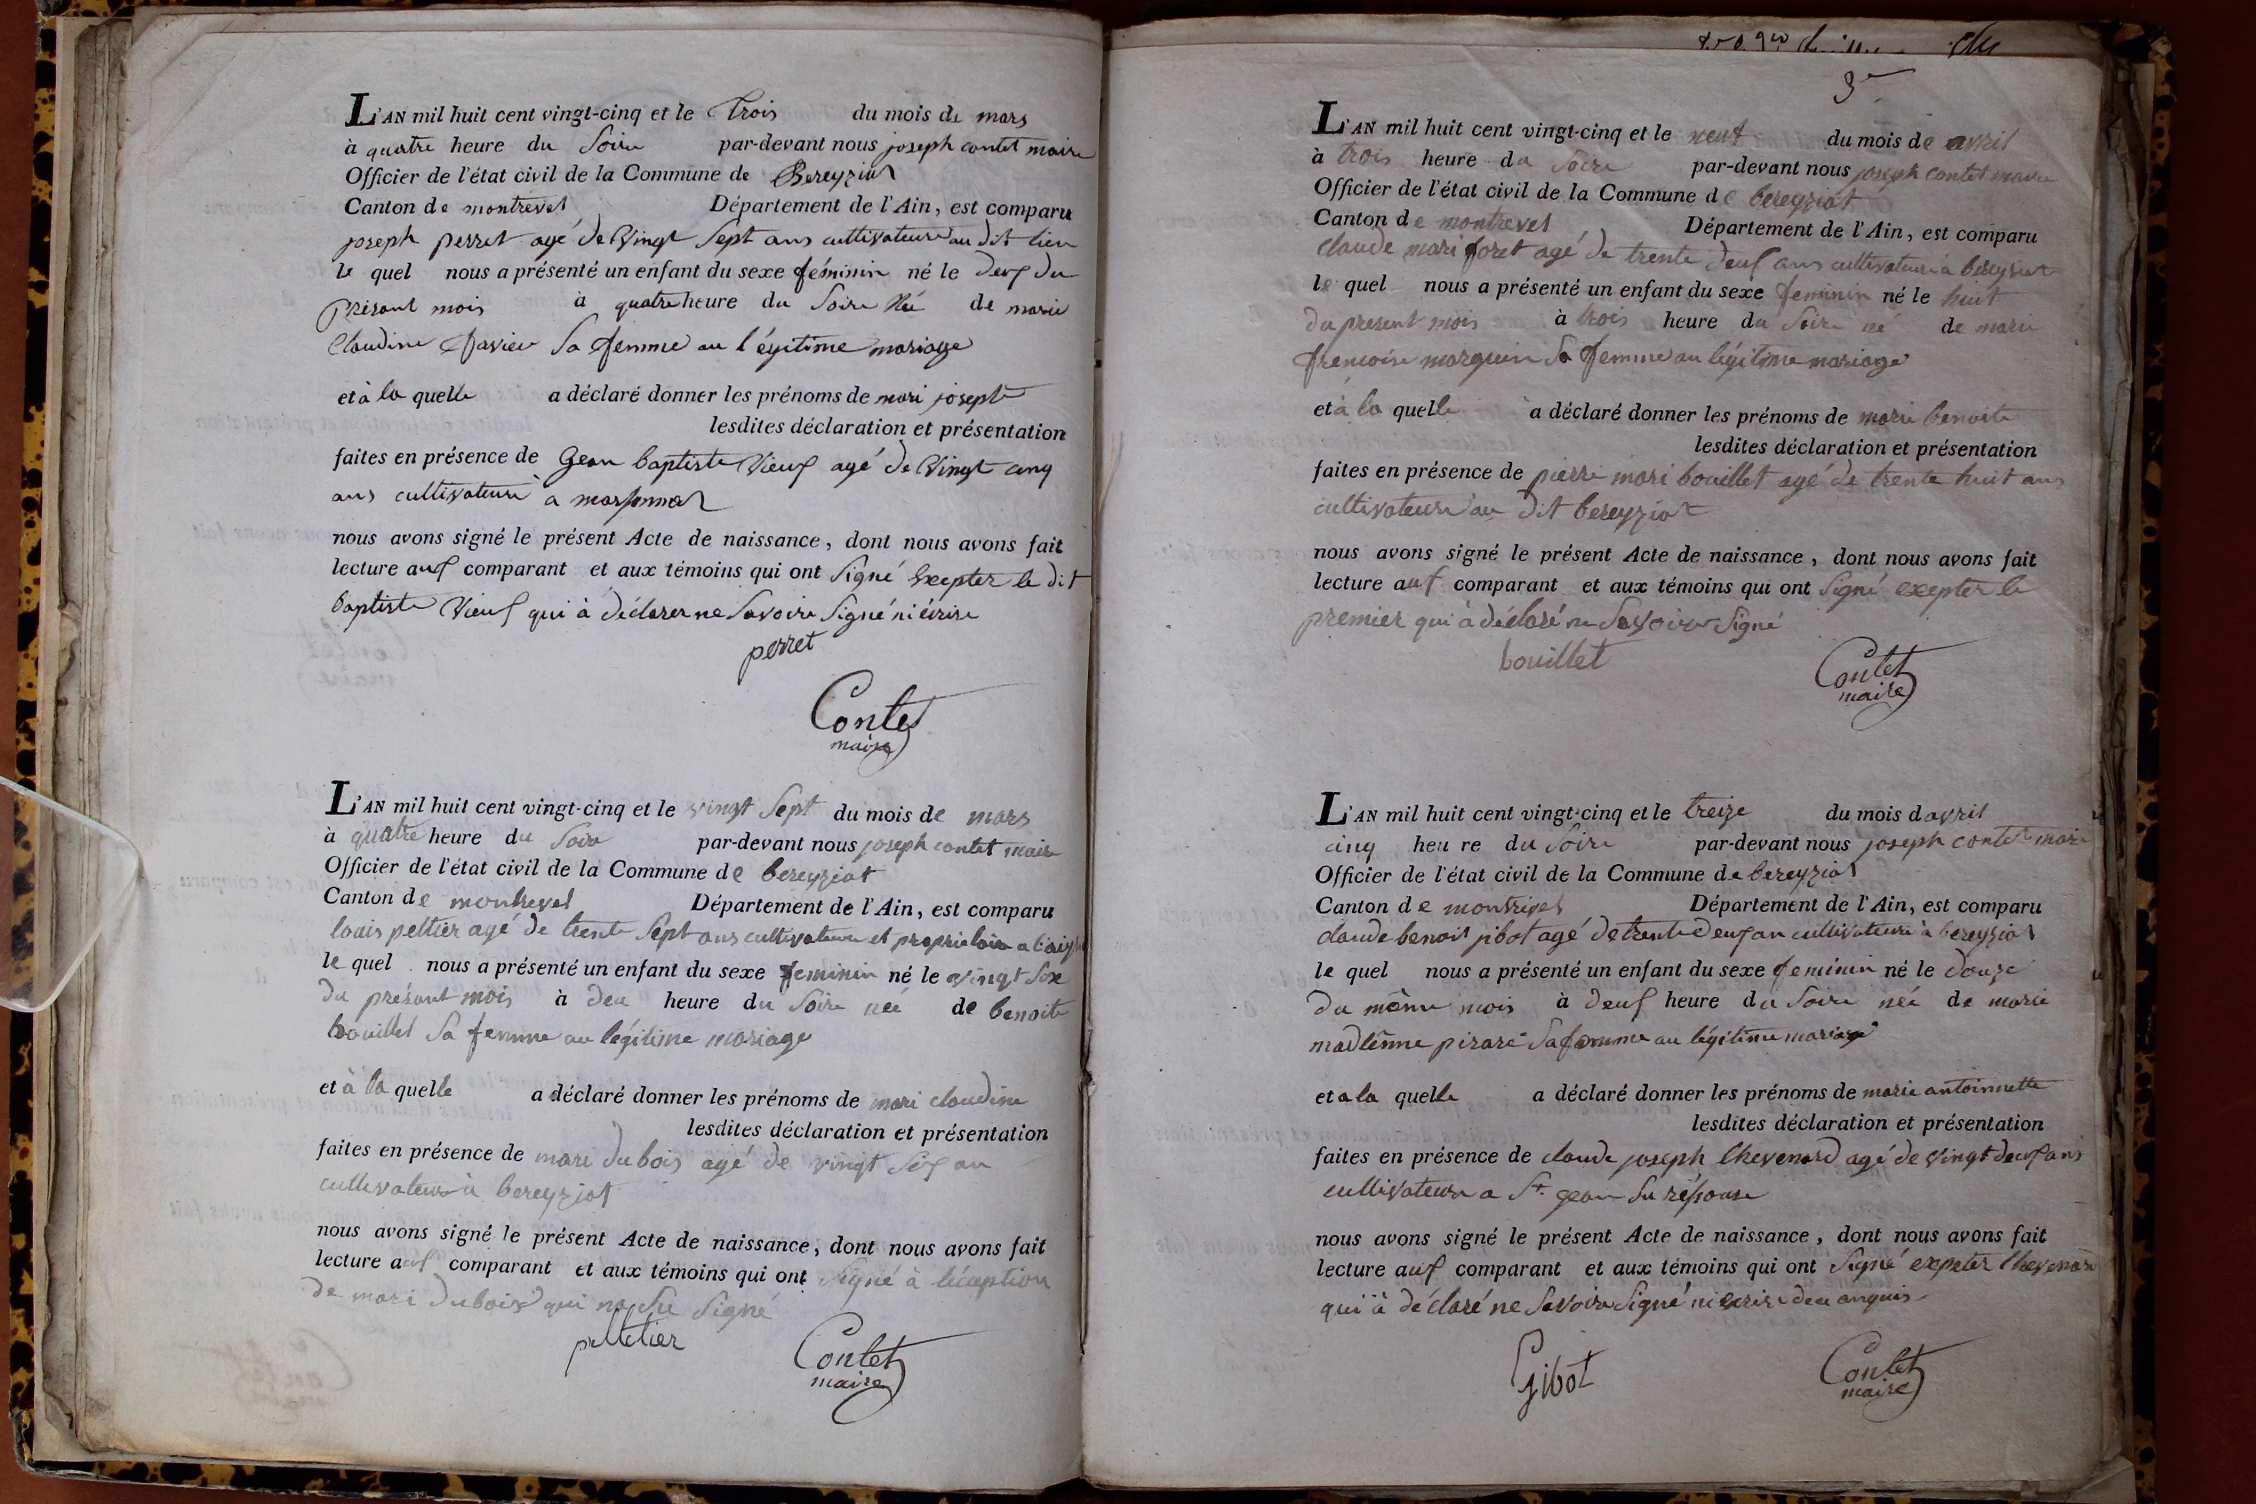 L'AN mil huit cent vingt-cinq et le Trois du mois de mars
à quatre heure du Soire par-devant nous joseph contet maire
Officier de l'état civil de la Commune de Bereyziat
Canton de montrevel Département de l'Ain, est comparu
joseph perret agé de Vingt Sept ans cultivateure au dit lieu
le quel nous a présenté un enfant du sexe féminin né le deux du
présant mois à quatre heure du Soire Née de marie
Claudine favier Sa femme au l'égitime mariage
et à la quelle a déclaré donner les prénoms de mari josephe
lesdites déclaration et présentation
faites en présence de Gean baptiste Vieux agé de Vingt cinq
ans cultivateure à marsonnas
nous avons signé le présent Acte de naissance, dont nous avons fait
lecture aux comparant et aux témoins qui ont Signé Exepter le dit
baptiste Vieux qui à déclarer ne Savoire Signé ni écrire
perret
Contet
maire
L'AN mil huit cent vingt-cinq et le vingt Sept du mois de mars
à quatre heure du Soire par-devant nous joseph contet maire
Officier de l'état civil de la Commune de bereyziat
Canton de montrevel Département de l'Ain, est comparu
louis peltier agé de trente Sept ans cultivateure et proprietaire a
le quel nous a présenté un enfant du sexe feminin né le vingt Six
du présant mois à deu heure du Soire née de benoite
bouillet Sa femme au légitime mariage
et à la quelle a déclaré donner les prénoms de mari claudine
lesdites déclaration et présentation
faites en présence de mari dubois agé de vingt Six an
cultivateur à bereyziat
nous avons signé le présent Acte de naissance, dont nous avons fait
lecture aux comparant et aux témoins qui ont Signé à léception
de mari dubois qui na Su Signé
pelletier
Contet
maire
3
L'AN mil huit cent vingt-cinq et le neuf du mois de avril
à trois heure du Soire par-devant nous joseph contet maire
Officier de l'état civil de la Commune de bereyziat
Canton de montrevel Département de l'Ain, est comparu
claude mari foret agé de trente deux ans cultivateure à bereyziat
le quel nous a présenté un enfant du sexe feminin né le huit
du present mois à trois heure du Soire né de marie
francoise marguin Sa femme au légitime mariage
et à la quelle a déclaré donner les prénoms de marie benoite
lesdites déclaration et présentation
faites en présence de pierre mari bouillet agé de trente huit ans
cultivateure au dit bereyziat
nous avons signé le présent Acte de naissance, dont nous avons fait
lecture aux comparant et aux témoins qui ont Signé exepter le
premier qui à déclaré ne Savoire Signé
bouillet
Contet
maire
L'AN mil huit cent vingt-cinq et le treize du mois d avril
cinq heure du Soire par-devant nous joseph contet maire
Officier de l'état civil de la Commune de bereyziat
Canton de montrevel Département de l'Ain, est comparu
claude benoit jibot agé de trente deux an cultivateure à bereyziat
le quel nous a présenté un enfant du sexe feminin né le douze
du même mois à deux heure du Soire née de marie
madlenne pirare Sa femme au légitime mariage
et a la quelle a déclaré donner les prénoms de marie antoinnette
lesdites déclaration et présentation
faites en présence de claude joseph Chevenard agé de vingt deux ans
cultivateure a St. gean Su
nous avons signé le présent Acte de naissance, dont nous avons fait
lecture aux comparant et aux témoins qui ont Signé expeter Chevenard
qui à déclaré ne Savoire Signé ni écrire de ce anquis
Gibot
Contet
maire